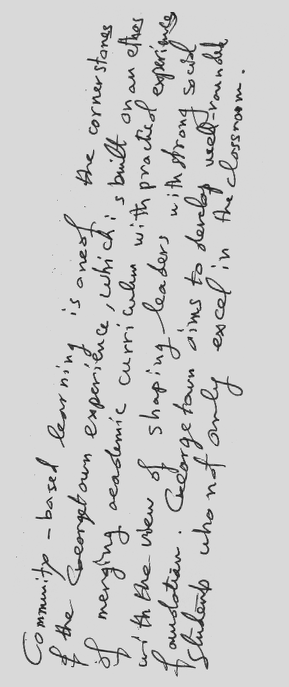 Community - based learning is one of the cornerstones
of the Georgetown experience, which is built on an ethos
of merging academic curriculum with practical experience
with the view of shaping leaders with strong social
foundation. Georgetown aims to develop well-rounded
students who not only excel in the classroom.